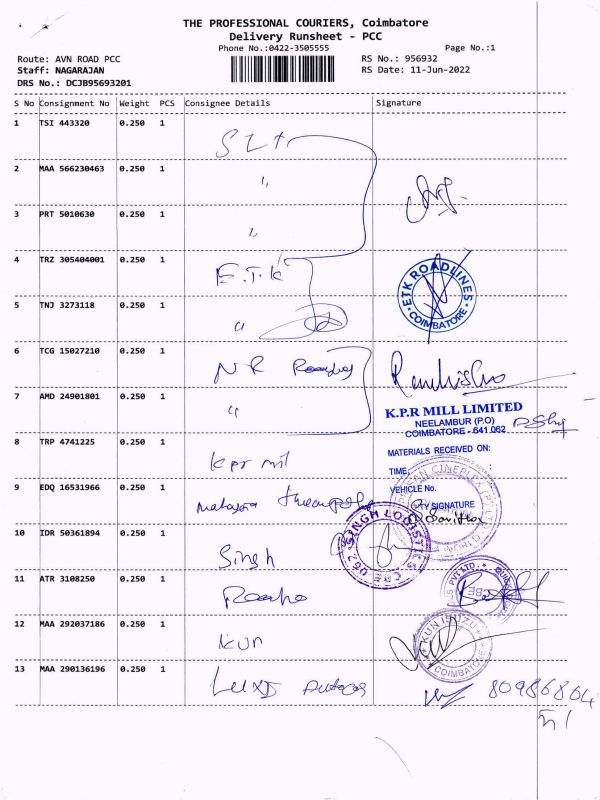 THE PROFESSIONAL COURIERS, Coimbatore
Delivery Runsheet - PCC
Phone No.:0422-3505555
Page No.:1
Route: AVN ROAD PCC
RS No.: 956932
Staff: NAGARAJAN
RS Date: 11-Jun-2022
DRS No.: DCJB95693201
S No Consignment No Weight PCS Consignee Details Signature
1 TSI 443320 0.250 1
2 MAA 566230463 0.250 1 "
3 PRT 5010630 0.250 1 "
4 TRZ 305404001 0.250 1 E.T.K
ETK ROADLINES
COIMBATORE
5 TNJ 3273118 0.250 1 "
6 TCG 15027210 0.250 1 NR
7 AMD 24901801 0.250 1 "
K.P.R MILL LIMITED
NEELAMBUR (P.O)
COIMBATORE - 641 062
8 TRP 4741225 0.250 1 kpr mil
MATERIALS RECEIVED ON:
TIME
VEHICLE No.
9 EDQ 16531966 0.250 1
SIGNATURE
10 IDR 50361894 0.250 1 Singh
SINGH LOGISTIC
11 ATR 3108250 0.250 1
12 MAA 292037186 0.250 1 KUN
KUN ISUZU
COIMBATORE
13 MAA 290136196 0.250 1